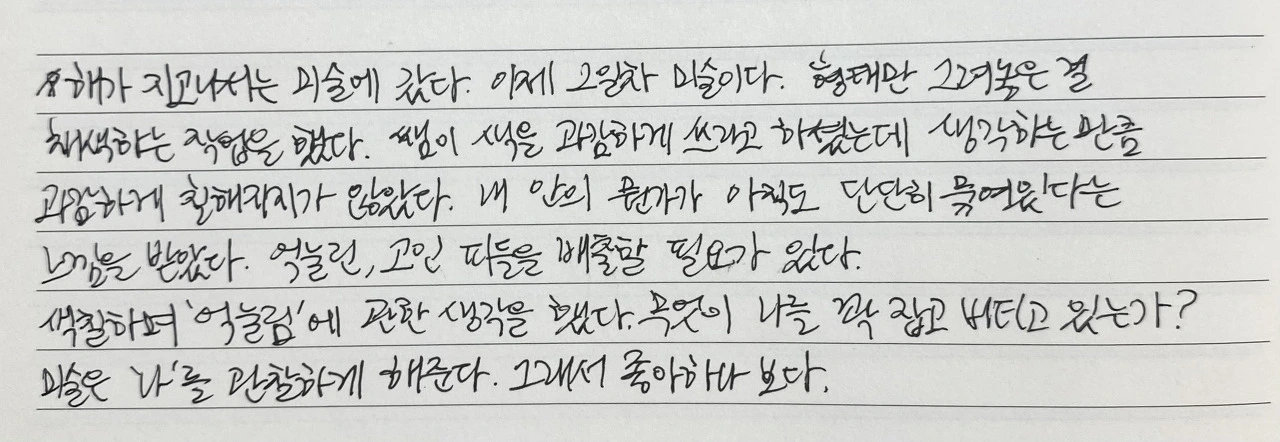 해가 지고나서는 미술에 갔다. 이제 2일차 미술이다. 형태만 그려놓은 걸
채색하는 작업을 했다. 쌤이 색을 과감하게 쓰라고 하셨는데 생각하는 만큼
과감하게 칠해지지가 않았다. 내 안의 뭔가가 아직도 단단히 묶여있다는
느낌을 받았다. 억눌린, 고인 피들을 배출할 필요가 있다.
색칠하며 '억눌림'에 관한 생각을 했다. 무엇이 나를 꽉 잡고 버티고 있는가?
미술은 '나'를 관찰하게 해준다. 그래서 좋아하나 보다.